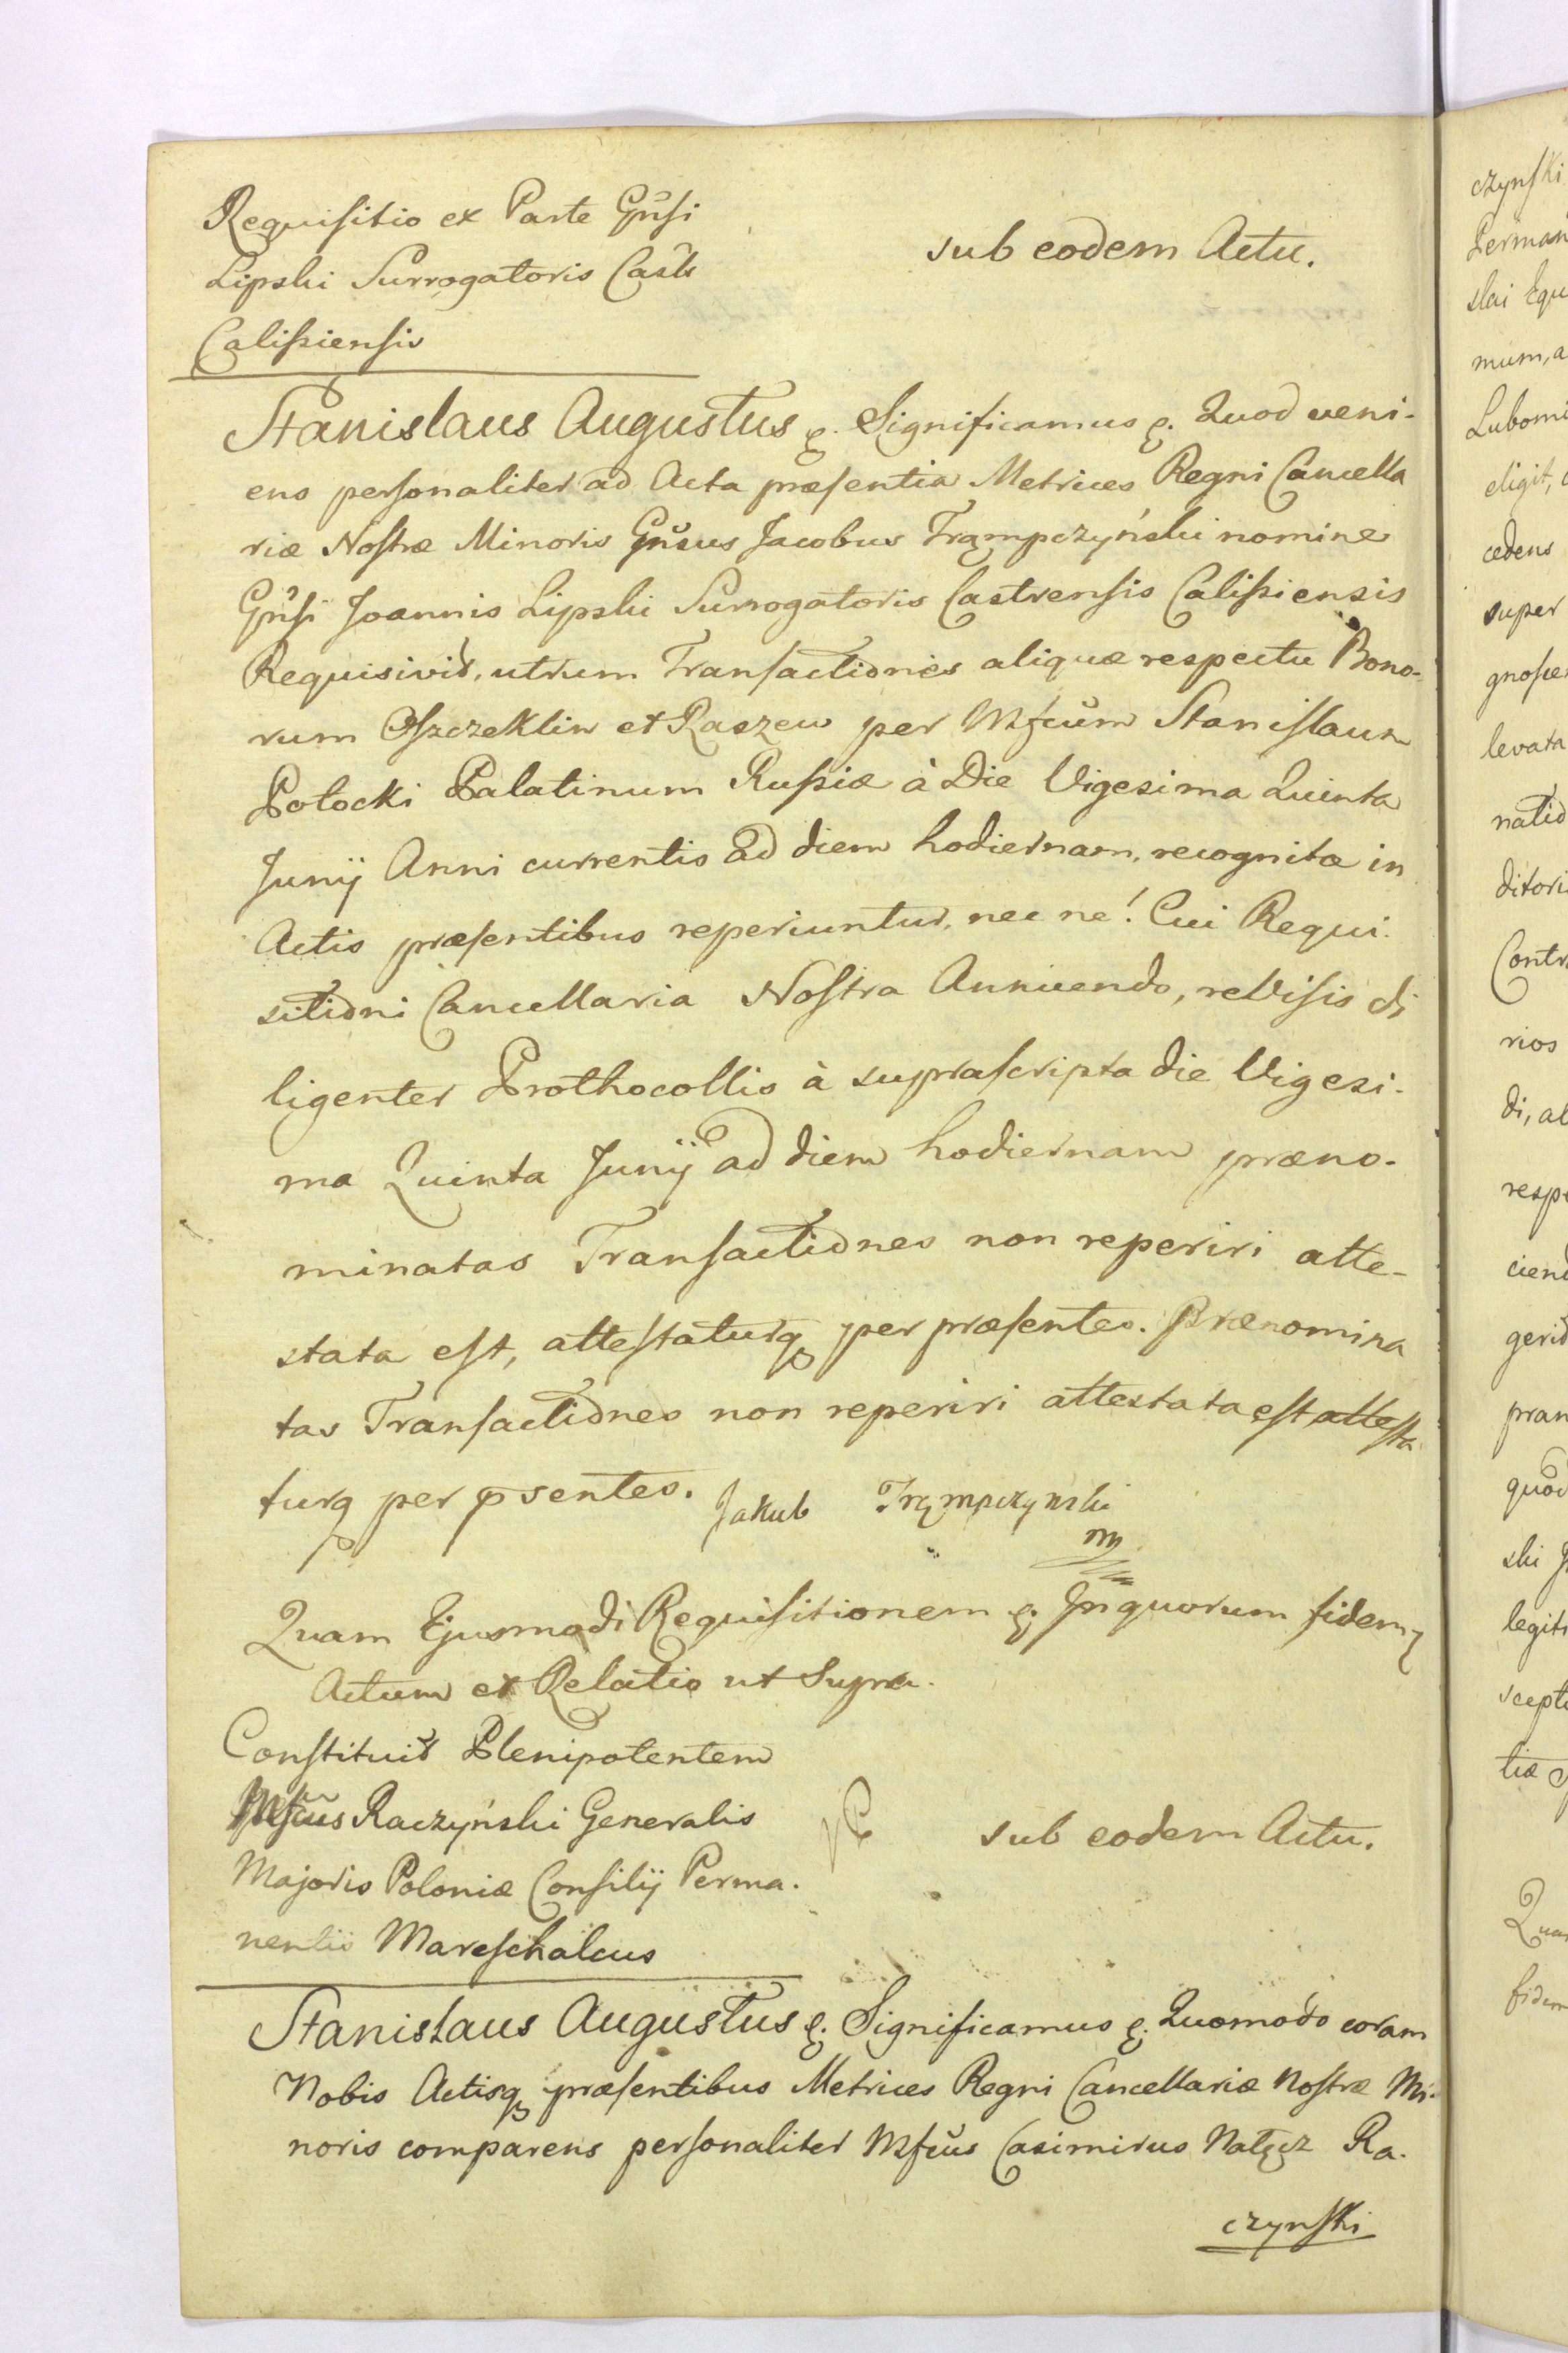 Requisitio ex Parte Gnsi
Lipski Surrogatoris Casts
Calissiensis
sub eodem Actu.
Stanislaus Augustus &. Significamus &. Quod veni-
ens personaliter ad Acta præsentia Metrices Regni Cancella
riæ Nostræ Minoris Gnsus Jacobus Trąmpczyński nomine
Gnsi Joannis Lipski Surrogatoris Castrensis Calissiensis
Requisivit, utrum Transactiones aliquæ respectu Bono-
rum Oszczeklin et Raszew per Mfcum Stanislaum
Potocki Palatinum Russiæ à Die Vigesima Quinta
Junij Anni currentis ad diem hodiernam, recognitæ in
Actis præsentibus reperiuntur, nec ne! Cui Requi-
sitioni Cancellaria Nostra Annuendo, reVisis di
ligenter Prothocollis à suprascripta die Vigesi-
ma Quinta Junij ad diem hodiernam præno-
minatas Transactiones non reperiri atte-
stata est, attestaturq per præsentes. Prænomina
tas Transactiones non reperiri attestata est attesta
turq per psentes. Jakub Trępmpczynski
mp
Quam Ejusmodi Requisitionem &. In quorum fidem
Actum et Relatio ut Supra.
Constituit Plenipotentem
Mfcus Raczyński Generalis
Majoris Poloniæ Consilij Perma-
nentis Mareschalcus
sub eodem Actu.
Stanislaus Augustus &. Significamus &. Quomodo coram
Nobis Actisq præsentibus Metrices Regni Cancellariæ Nostræ Mi-
noris comparens personaliter Mfcus Casimirus Nałęcz Ra-
czynski
czynski
Perman
slai Equ
mum, a
Lubomi
eligit,
cedens
super
gnosce
levata
natio
ditori
Contr
rios
di, al
resp
ciend
gerit
pran
quod
ski
legiti
scept
tiæ
Quam
fidem